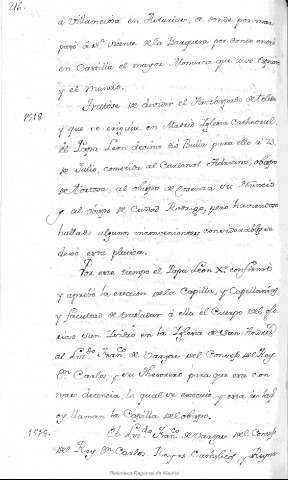 216.
á Villaviciosa en Asturias, de donde por mar
pasó á Sn. Vicente de la Barquera por donde entró
en Castilla el mayor Monarca que tuvo España
y el mundo.
Tratóse de dividir el Arzobispado de Toledo
1518
y que se erigiese en Madrid Iglesia Cathedral,
el Papa Leon decimo dió Bulla para ello á 23.
de Julio, cometida al Cardenal Adriano, obispo
de tortosa, al obispo de Cosenza su Nuncio
y al obispo de Ciudad Rodrigo, pero haviendose
hallado algunos inconvenientes considerables se
dexó esta platica.
Por este tiempo el Papa Leon X.º confirmó
y aprobó la ereccion de la Capilla, y Capellanias
y facultad de trasladar á ella el Cuerpo del glo
rioso San Isidro en la Iglesia de San Andres
al Lizdo. Franco. de Vargas del Consejo del Rey
Dn. Carlos, y su Thesorero para que esté con
mas decencia, lo qual se executó y esta es la q
oy llaman la Capilla del obispo.
1518.
El Lizdo. Franco. de Vargas del Consejo
del Rey Dn. Carlos Reyes Catholicos y Reyna
Biblioteca Regional de Madrid